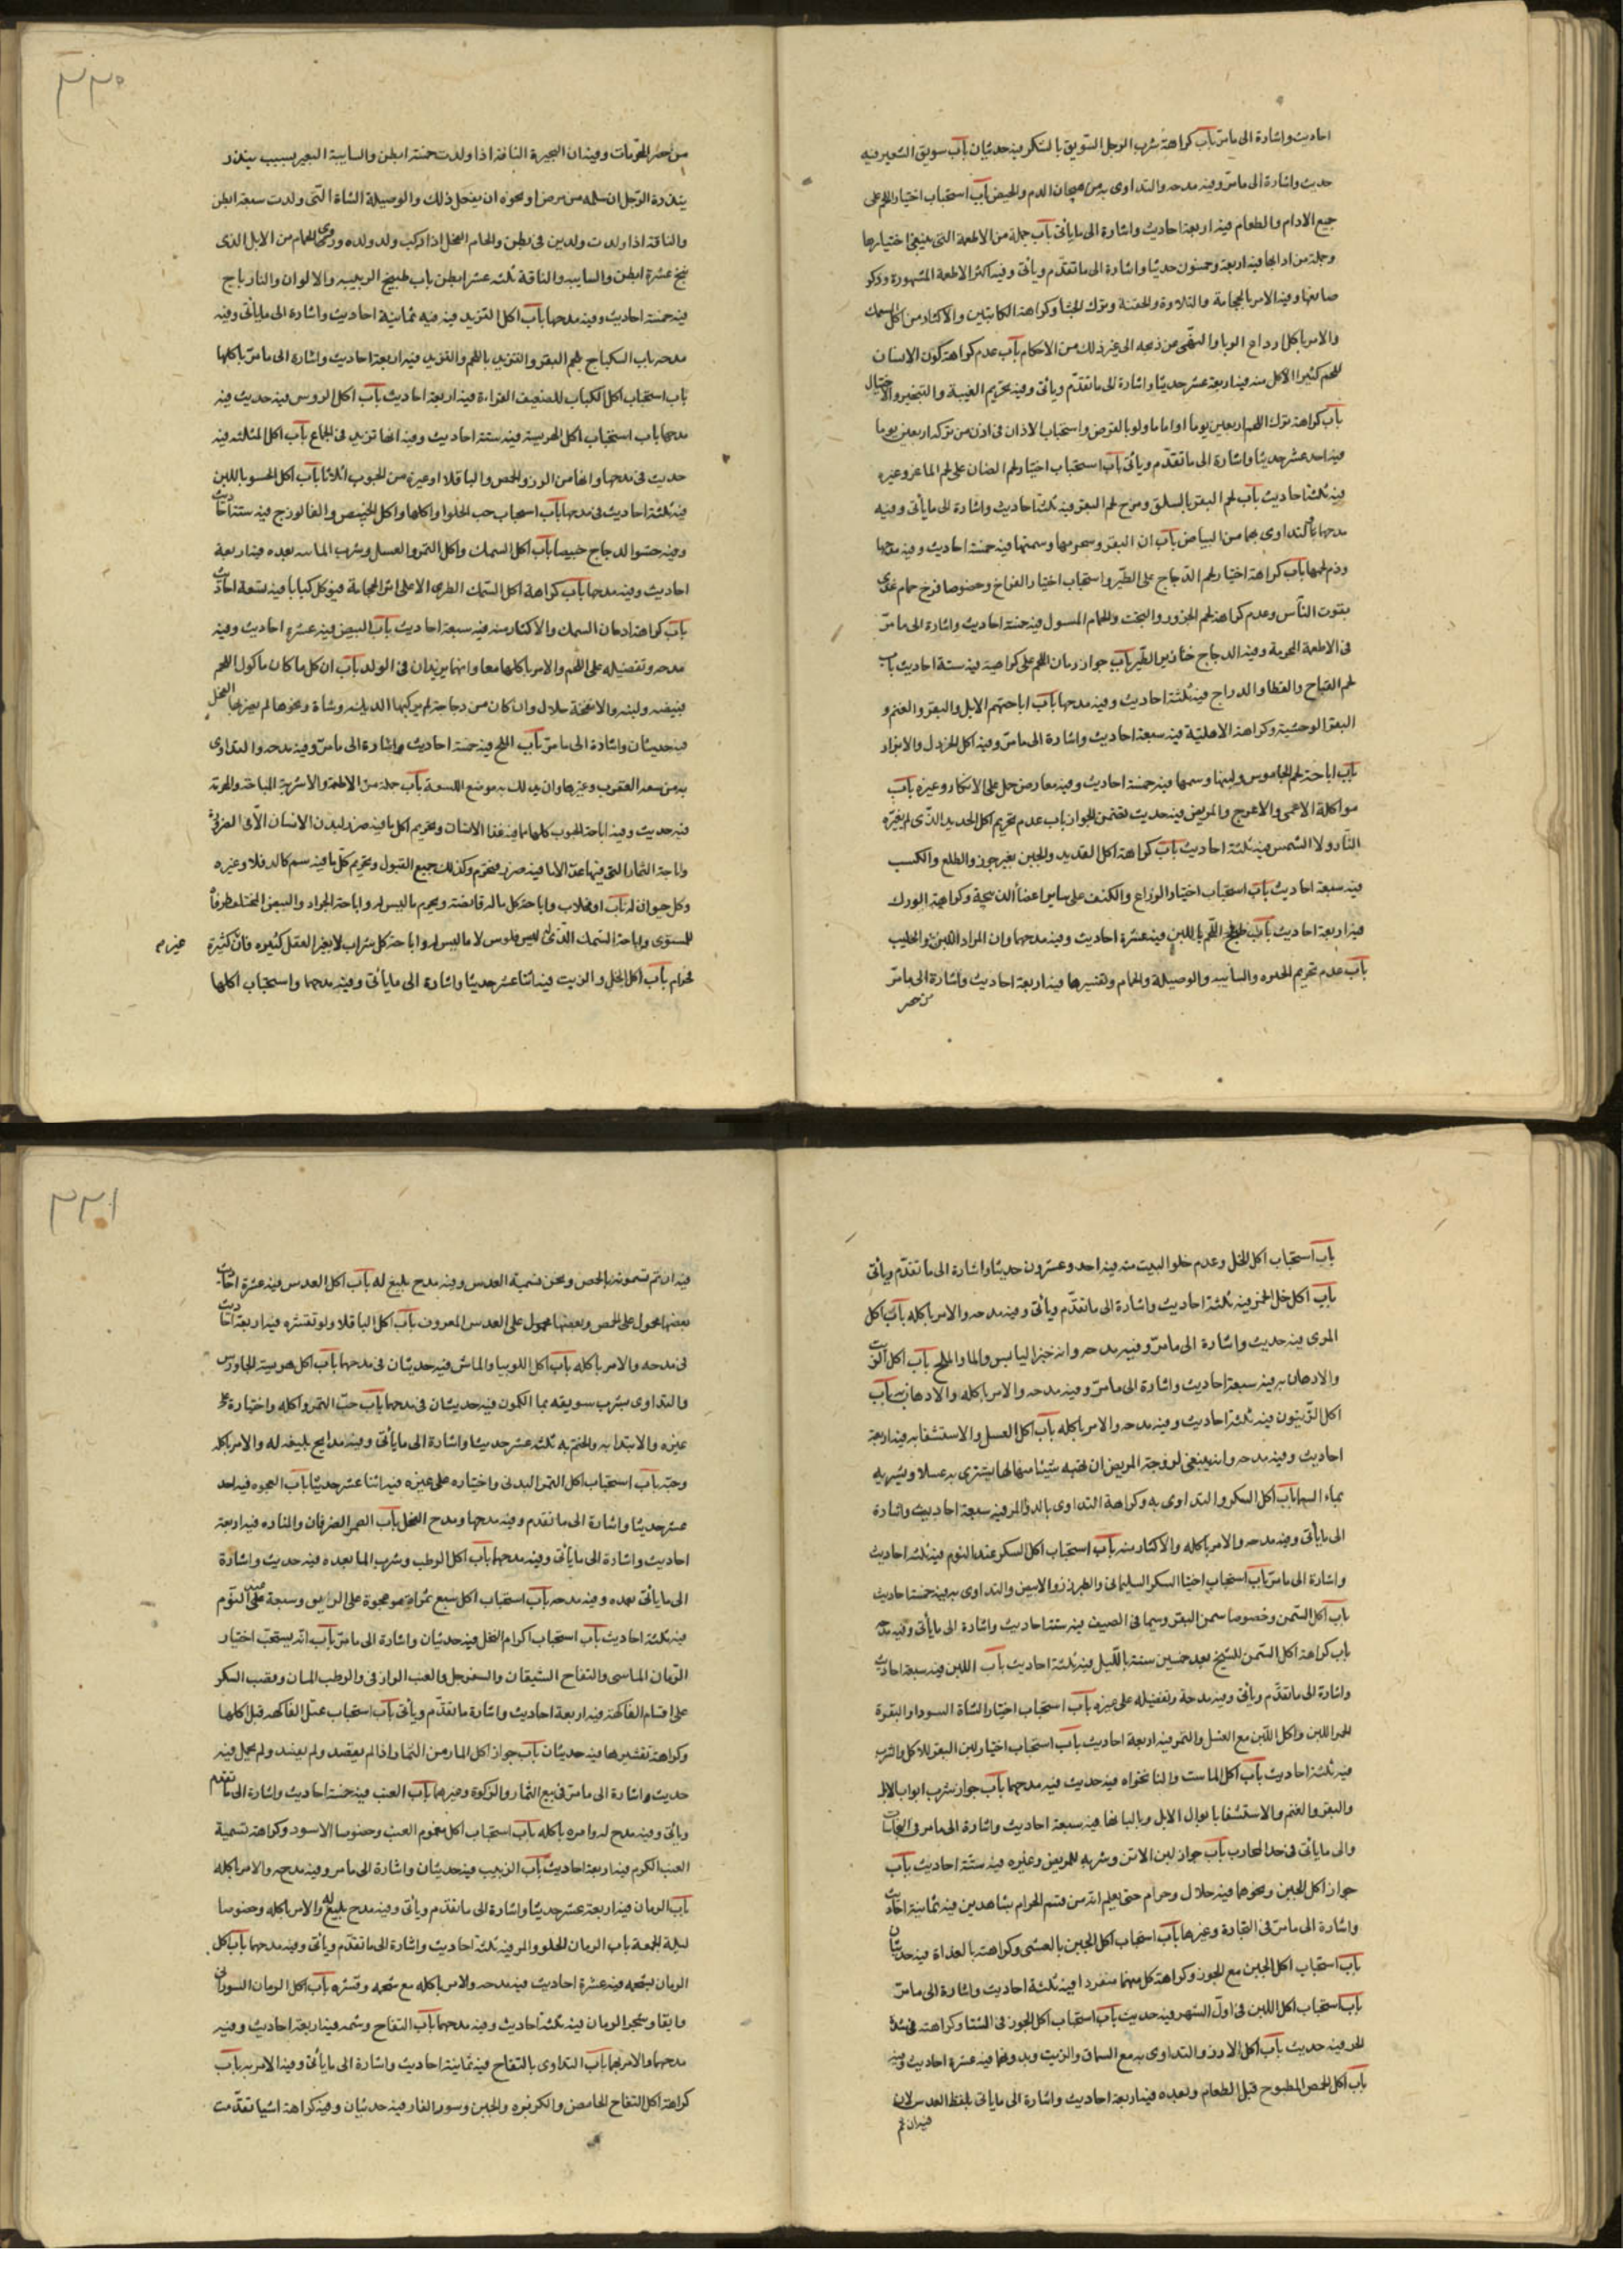 احاديث واشارة الى ما مرّ باب كراهة شرب الرجل السويق بالسكر فيه حديثان باب سويق الشعير فيه
حديث واشارة الى ما مرّ وفيه مدحه والتداوى به من هيجان الدم والحيض باب استحباب اختيار اللحم على
جميع الادام والطعام فيه اربعة احاديث واشارة الى ما يأتى باب جملة من الاطعمة التى ينبغى اختيارها
وجملة من ادابها فيه اربعة وخمسون حديثا واشارة الى ما تقدّم ويأتى وفيه اكثر الاطعمة المشهورة وذكر
منافعها وفيه الامر بالحجامة والتلاوة والحقنة وترك الجشأ وكراهة الكامين والاكثار من اكل السمك
والامر باكل الوبا والنهى عن ذبحه الى غير ذلك من الاحكام باب عدم كراهة كون الانسان
لحم كثير الاكل منه فيه اربعة عشر حديثا واشارة الى ما تقدّم ويأتى وفيه تحريم الغيبة والتبختر والاختيال
باب كراهة ترك اللحم اربعين يوما او اياما ولو بالقرض واستحباب الاذان فى اذن من تركه اربعين يوما
فيه احد عشر حديثا واشارة الى ما تقدّم ويأتى باب استحباب اختيار لحم الضان على لحم الماعز وغيره
فيه ثلثة احاديث باب لحم البقر بالسلق ومرق لحم البقر فيه ثلثة احاديث واشارة الى ما يأتى وفيه
مدحها والتداوى بهما من البياض باب البان البقر وشحومها وسمنها فيه خمسة احاديث وفيه مدحها
وذم لحمها باب كراهة اختيار لحم الدّجاج على الطّير واستحباب اختيار الفراخ وخصوصا فرخ حمام غذى
بقوت النّاس وعدم كراهة لحم الجزور والبخت والحمام المسرول فيه خمسة احاديث واشارة الى ما مرّ
فى الاطعمة المجربة وفيه الدجاج خنازير الطّير باب جواز ادمان اللحم على كراهية فيه ستة احاديث باب
لحم القباج والقطا والدراج فيه ثلثة احاديث وفيه مدحها باب اباحة لحم الابل والبقر والغنم و
البقر الوحشية وكراهة الاهلية فيه سبعة احاديث واشارة الى ما مرّ وفيه اكل الخردل والابزار
باب اباحة لحم الجاموس ولبنها وسمنها فيه خمسة احاديث وفيه معارض حمل على الانكار وغيره باب
مواكلة الاعمى والاعرج والمريض فيه حديث تضمن الجواز باب عدم تحريم اكل القديد الذى لم يغيّره
النّار ولا الشمس فيه ثلثة احاديث باب كراهة اكل القديد والجبن بغير جوز والطلع والكسب
فيه سبعة احاديث باب استحباب اختيار الذراع والكتف على ساير اعضاء الذبيحة وكراهة الورك
فيه اربعة احاديث باب طبخ اللّحم باللبن فيه عشرة احاديث وفيه مدحهما وان المراد اللبن الحليب
باب عدم تحريم البحيره والسايبه والوصيلة والحام وتفسيرها فيه اربعة احاديث واشارة الى ما مرّ
من حصر
٣٣٠
من حصر المحرّمات وفيه ان البحيرة الناقة اذا ولدت خمسة ابطن والسايبة البعير يسيب بنذر
ينذره الرّجل ان سلمه من مرض او نحوه ان يفعل ذلك والوصيلة الشاة التّى ولدت سبعة ابطن
والناقة اذا ولدت ولدين فى بطن والحام الفحل اذا ركب ولد ولده وروى الحام من الابل الذى
نتج عشرة ابطن والسايبه والناقة ثلثه عشر ابطن باب طبيخ الزبيبيه والالوان والنارباج
فيه خمسة احاديث وفيه مدحها باب اكل الثريد فيه ثمانية احاديث واشارة الى ما يأتى وفيه
مدحه باب السكباج بلحم البقر والثريد باللحم والثريد فيه اربعة احاديث واشارة الى ما مرّ باكلها
باب استحباب اكل الكباب للضعيف القوة فيه اربعة احاديث باب اكل الروس فيه حديث فيه
مدحها باب استحباب اكل الهريسة فيه ستة احاديث وفيه انها تزيد فى الجماع باب اكل المثلثه فيه
حديث فى مدحها وانها من الارز والحمص والباقلا او غيره من الحبوب اثلاثا باب اكل الحسو باللبن
فيه ثلثة احاديث فى مدحها باب استحباب حب الحلوا واكلها واكل الخبيص والفالوذج فيه ستة احاديث
وفيه حشو الدجاج خبيصا باب اكل السمك واكل التمر والعسل وشرب الماء بعده فيه اربعة
احاديث وفيه مدحها باب كراهة اكل السّمك الطرى الا على اثر الحجامة فيؤكل كبابا فيه تسعة احاديث
باب كراهة ادمان السمك والاكثار منه فيه سبعة احاديث باب البيض فيه عشرة احاديث وفيه
مدحه وتفضيله على اللحم والامر باكلهما معا وانهما يزيدان فى الولد باب ان كل ما كان ماكول اللحم
فبيضه ولبنه والانفحة حلال وان كان من دجاجة لم يركبها الديك وشاة ونحوها لم يضربها الفحل
فيه حديثان واشارة الى ما مرّ باب الملح فيه خمسة احاديث واشارة الى ما مرّ وفيه مدحه والتداوى
به من لسعة العقرب وغيرها وان يدلك به موضع اللسعة باب جملة من الاطعمة والاشربة المباحة والمحرمة
فيه حديث وفيه اباحة الحبوب كلها مما فيه غذا الانسان وتحريم اكل ما فيه ضرر لبدن الانسان الّا فى الضرورة
واباحة الثمار التى فيها غذا الا ما فيه ضرر فيحرم وكذلك جميع البقول وتحريم كلّ ما فيه سم كالدفلا وغيره
وكل حيوان له ناب او مخلاب واباحة كل ما له قانصة ويحرم ما ليس له واباحة الجراد والبيض المختلف طرفاه
للمستوى واباحة السّمك الذى له فلوس لا ما ليس له واباحة كل شراب لا يغير العقل كثيره فان كثيره غيره م
فحرام باب اكل الخل والزيت فيه اثنا عشر حديثا واشارة الى ما يأتى وفيه مدحهما واستحباب اكلهما
باب استحباب اكل الخل وعدم خلو البيت منه فيه احد وعشرون حديثا واشارة الى ما تقدّم ويأتى
باب اكل خل الخمر فيه ثلثة احاديث واشارة الى ما تقدّم ويأتى وفيه مدحه والامر باكله باب اكل
المرى فيه حديث واشارة الى ما مرّ وفيه مدحه وانه خبز اليابس والما والملح باب اكل الزيت
والادهان به فيه سبعة احاديث واشارة الى ما مرّ وفيه مدحه والامر باكله والادهان به باب
اكل الزّيتون فيه ثلثة احاديث وفيه مدحه والامر باكله باب اكل العسل والاستشفا به فيه اربعة
احاديث وفيه مدحه وانه ينبغى لزوجة المريض ان تهبه شيئا من مالها يشترى به عسلا ويشربه
بماء السماء باب اكل السكر والتداوى به وكراهة التداوى بالدواء المر فيه سبعة احاديث واشارة
الى ما يأتى وفيه مدحه والامر باكله والاكثار منه باب استحباب اكل السكر عند النوم فيه ثلثه احاديث
واشارة الى ما مرّ باب استحباب اختيار السكر السليمانى والطبرزد والابيض والتداوى به فيه خمسة احاديث
باب اكل السّمن وخصوصا سمن البقر وسيما فى الصيف فيه ستة احاديث واشارة الى ما يأتى وفيه مدحه
باب كراهة اكل السّمن للشيخ بعد خمسين سنة بالّليل فيه ثلثة احاديث باب اللبن فيه سبعة احاديث
واشارة الى ما تقدّم ويأتى وفيه مدحه وتفضيله على غيره باب استحباب اختيار الشاة السودا والبقرة
الحمرا للبن واكل اللّبن مع العسل والتمر فيه اربعة احاديث باب استحباب اختيار لبن البقر للاكل والشرب
فيه ثلثة احاديث باب اكل الماست والنانخواه فيه حديث فيه مدحهما باب جواز شرب ابوال الابل
والبقر والغنم والاستشفا بابوال الابل وبالبانها فيه سبعة احاديث واشارة الى ما مر فى النجاسات
والى ما يأتى فى حد المحارب باب جواز لبن الاتن وشربه للمريض وغيره فيه ستّة احاديث باب
جواز اكل الجبن ونحوها فيه حلال وحرام حتى يعلم انّه من قسم الحرام بشاهدين فيه ثمانية احاديث
واشارة الى ما مرّ فى التجارة وغيرها باب استحباب اكل الجبن بالعشى وكراهته بالغداة فيه حديثان
باب استحباب اكل الجبن مع الجوز وكراهة كل منهما منفردا فيه ثلثة احاديث واشارة الى ما مرّ
باب استحباب اكل اللبن فى اوّل الشهر فيه حديث باب استحباب اكل الجوز فى الشتا وكراهته فى شدّة
الحر فيه حديث باب اكل الارز والتداوى به مع السماق والزيت وبدونهما فيه عشرة احاديث وفيه
باب اكل الحمص المطبوخ قبل الطعام وبعده فيه اربعة احاديث واشارة الى ما يأتى بلفظ العدس لان
فيه ان تم
٣٣١
فيه انتم تسمونه الحمص ونحن نسميه العدس وفيه مدح بليغ له باب اكل العدس فيه عشرة احاديث
بعضها محمول على الحمص وبعضها محمول على العدس المعروف باب اكل الباقلا ولو بقشره فيه اربعة احاديث
فى مدحه والامر باكله باب اكل اللوبيا والماش فيه حديثان فى مدحها باب اكل هريسة الجاورس
والتداوى بشرب سويقه بما الكمون فيه حديثان فى مدحها باب حبّ التمر واكله واختياره على
غيره والابتدا به والختم به ثلثه عشر حديثا واشارة الى ما يأتى وفيه مدايح بليغه له والامر باكله
وحبّه باب استحباب اكل التمر البرنى واختياره على غيره فيه اثنا عشر حديثا باب العجوه فيه احد
عشر حديثا واشارة الى ما تقدم وفيه مدحها ومدح النخل باب التمر الصرفان والمشان فيه اربعة
احاديث واشارة الى ما يأتى وفيه مدحهما باب اكل الرطب وشرب الما بعده فيه حديث واشارة
الى ما يأتى بعده وفيه مدحه باب استحباب اكل سبع تمرات عجوة على الريق وسبعة عند النّوم
فيه ثلثة احاديث باب استحباب اكرام النخل فيه حديثان واشارة الى ما مرّ باب انّه يستحبّ اختيار
الرّمان الملاسى والتفاح الشيقان والسفرجل والعنب الرازقى والرطب المشان وقصب السكر
على اقسام الفاكهة فيه اربعة احاديث واشارة ما تقدّم ويأتى باب استحباب غسل الفاكهه قبل اكلها
وكراهة تقشيرها فيه حديثان باب جواز اكل المار من الثمار اذا لم يقصد ولم يفسد ولم يحمل فيه
حديث واشارة الى ما مرّ فى بيع الثمار والزكوة وغيرهما باب العنب فيه خمسة احاديث واشارة الى ما تقدم
ويأتى وفيه مدح له وامره باكله باب استحباب اكل مغموم العنب وخصوصا الاسود وكراهة تسمية
العنب الكرم فيه اربعة احاديث باب الزبيب فيه حديثان واشارة الى ما مر وفيه مدحه والامر باكله
باب الرمان فيه اربعة عشر حديثا واشارة الى ما تقدّم ويأتى وفيه مدح بليغ له والامر باكله وخصوصا
ليلة الجمعة باب الرمان الحلو والمر فيه ثلثة احاديث واشارة الى ما تقدّم ويأتى وفيه مدحهما باب اكل
الرمان بشحمه فيه عشرة احاديث فيه مدحه والامر باكله مع شحمه وقشره باب اكل الرمان السورانى
وابقا وشجر الرمان فيه ثلثة احاديث وفيه مدحهما باب التفاح وشمه فيه اربعة احاديث وفيه
مدحهما والامر بهما باب التداوى بالتفاح فيه ثمانية احاديث واشارة الى ما يأتى وفيه الامر به باب
كراهة اكل التفاح الحامض والكزبره والجبن وسور الفار فيه حديثان وفيه كراهة اشيا تقدّمت